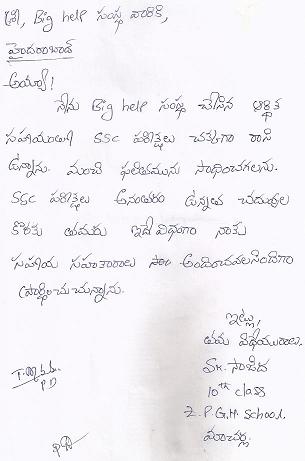 శ్రీ, Big help సంస్థ వారికి,
హైదరాబాద్
అయ్యా!
నేను Big help సంస్థ చేసిన ఆర్థిక
సహాయంతో SSC పరీక్షలు చక్కగా రాసి
ఉన్నాను. మంచి ఫలితమును సాధించగలను.
SSC పరీక్షలు అనంతరం ఉన్నత చదువుల
కొరకు తమరు ఇదే విధంగా నాకు
సహాయ సహకారాలు అందించవలసిందిగా
ప్రార్థించుచున్నాను.
ఇట్లు,
తమ విధేయురాలు.
Sk. సాజిద
10th class
Z. P. G. H School.
మాచర్ల.